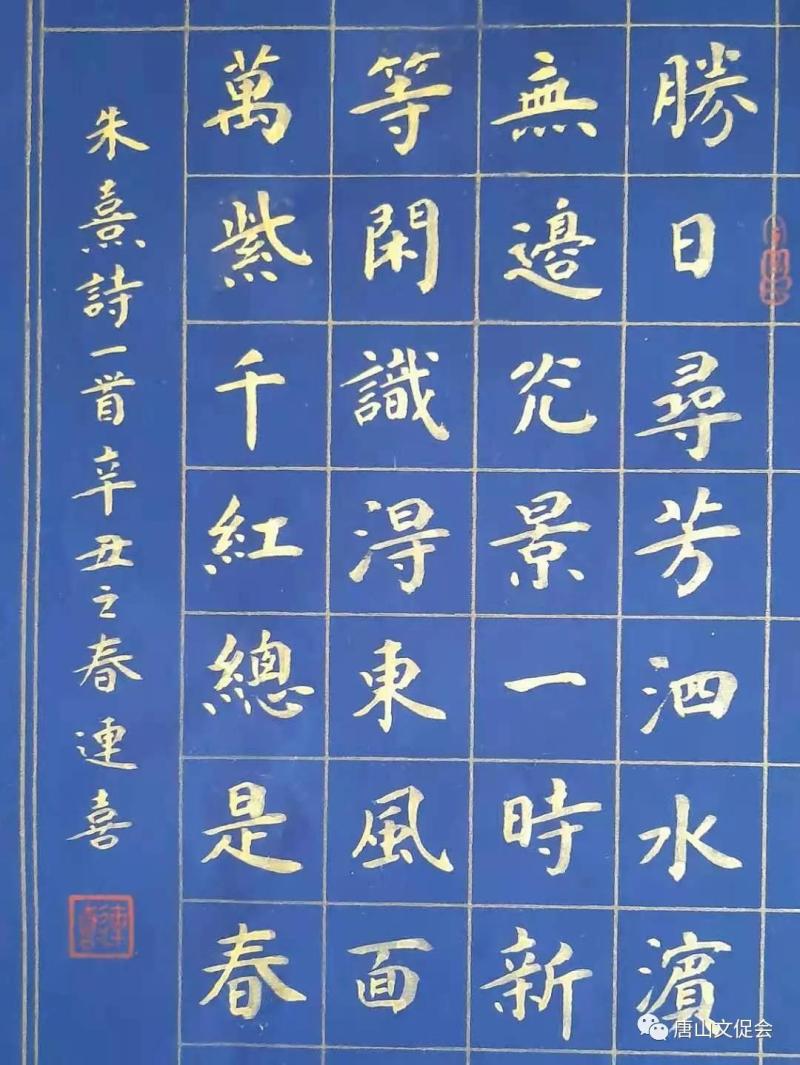 勝日尋芳泗水濱
無邊光景一時新
等閑識得東風面
萬紫千紅總是春
朱熹詩一首辛丑之春連喜
唐山文促会